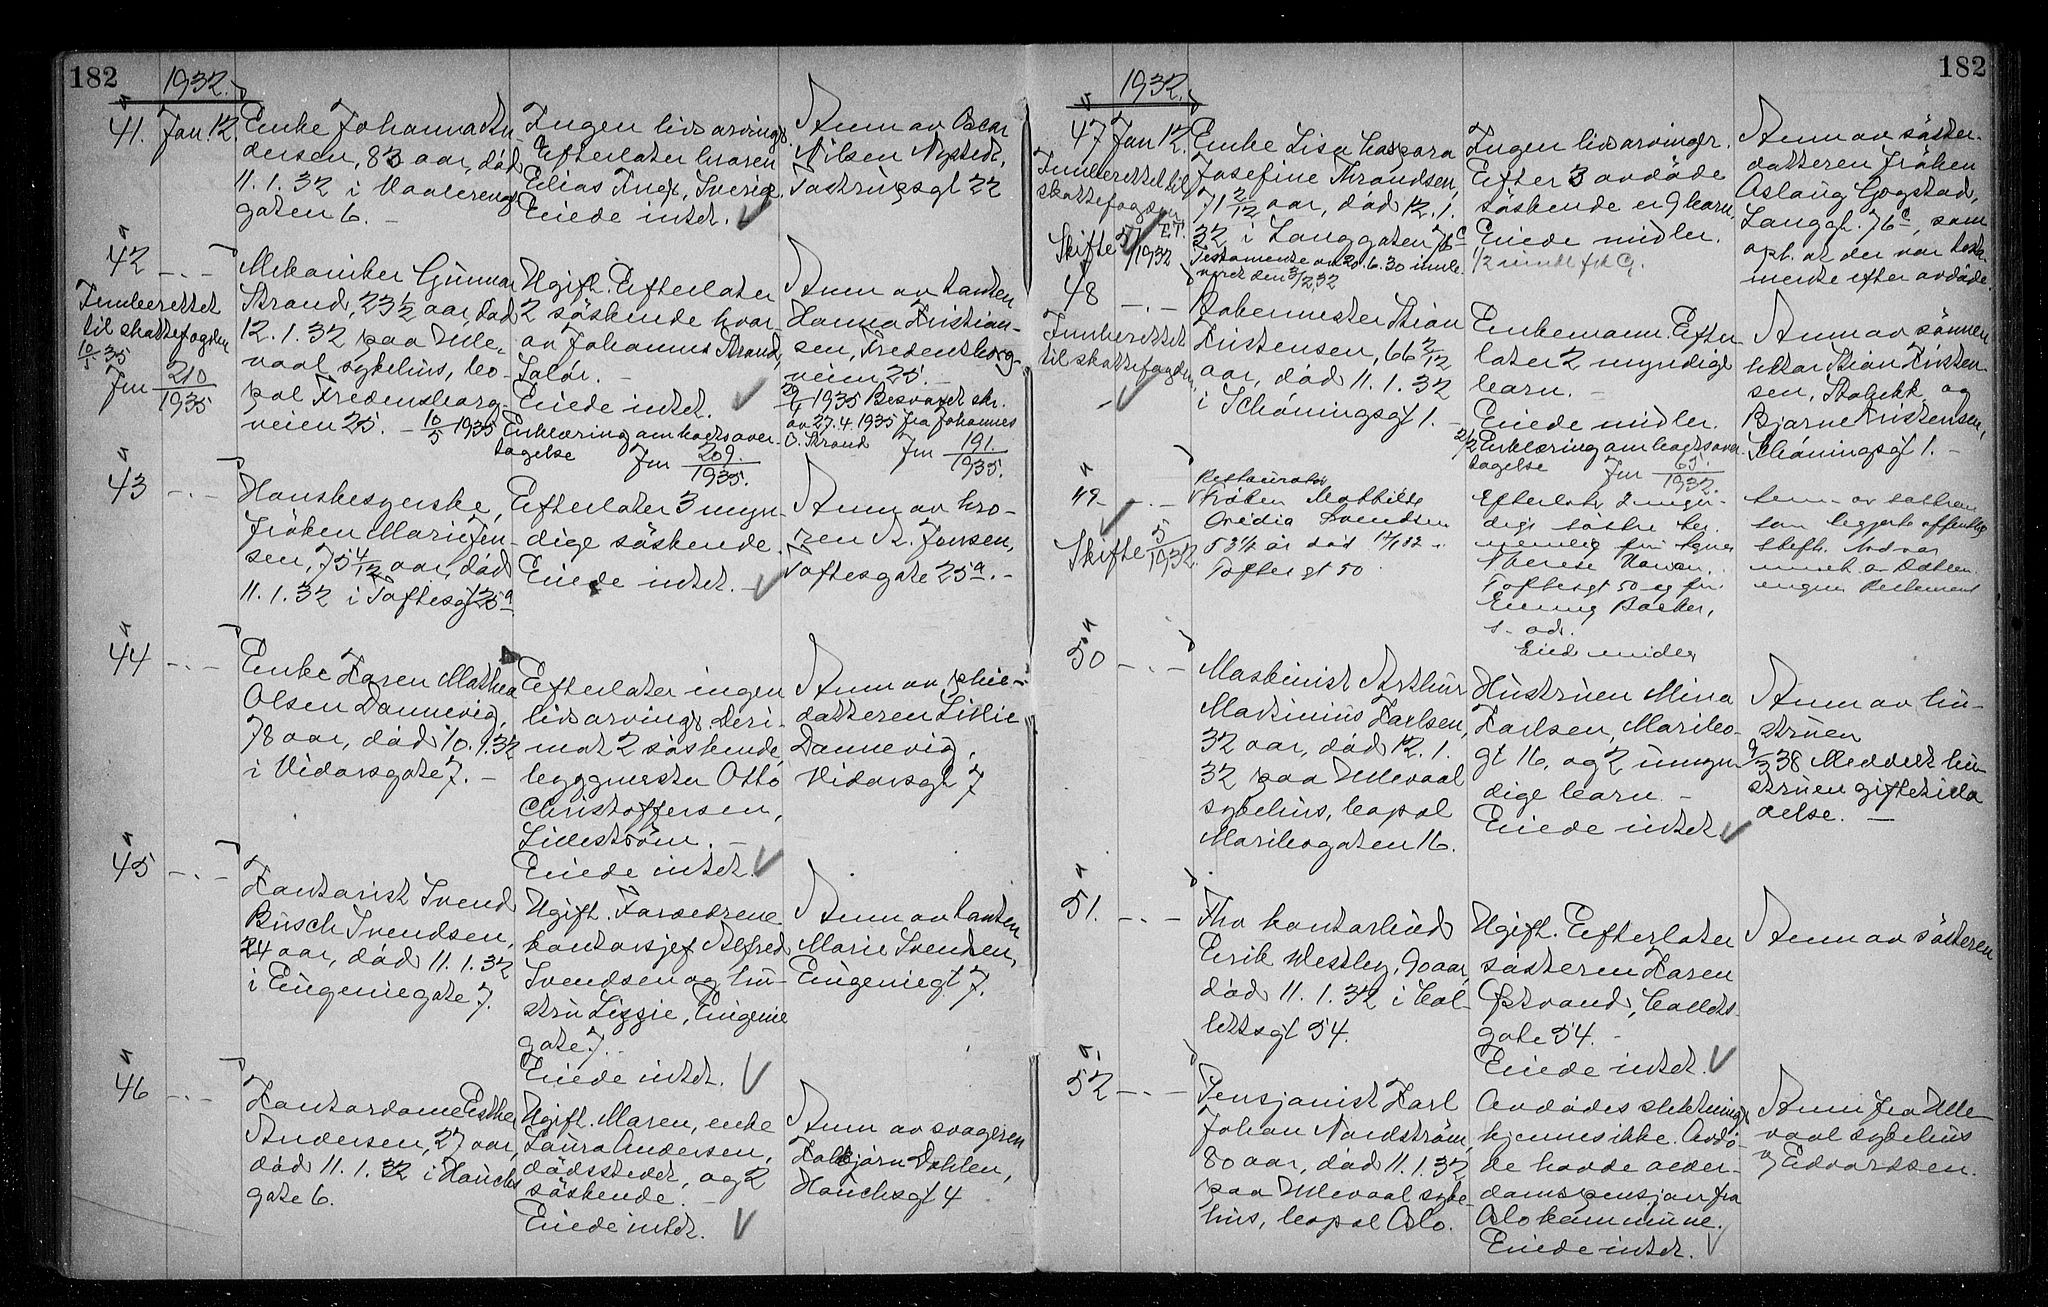 182
1932.
41. Jan. 12.
Enke Johanna An
dersen, 83 aar, död
11.1.32 i Vaalereng
gaten 6. -
Ingen livsarvinger.
Efterlater broren
Elias Sverige.
Eiede intet.
Anm av Oscar
Nilsen Nysted,
Tostrupsgt 22
42 -.-
Innberettet
til skattefogden
10/5 35
Jnr 210/1935
Mekaniker Gunnar
Strand, 23 1/2 aar, död
12.1.32 paa Ulle,
vaal sykehus, bo-
pæl Fredensborg
veien 25. -
Ugift. Efterlater
2 söskende hvor-
av Johannes Strand,
Solör. -
Eiede intet.
10/5 1935 Erklæring om bodsover
tagelse Jnr 209./1935.
Anm av tanten
Hanna Kristian-
sen, Fredensborg-
veien 25. -
1935 Besvaret skr.
av 27.4.1935 fra Johannes
O. Strand Jnr 191./1935.
43 -.-
Hanskesyerske,
fröken Marie Jen-
sen, 75 4/12 aar, död
11.1.32 i Toftesgt 25a
Efterlater 3 myn-
dige söskende.
Eiede intet. -
Anm av bro-
ren R. Jensen,
Toftesgate 25a. -
44 -.-
Enke Karen Mathea
Olsen Dannevig,
78 aar, död 10.1.32
i Vidarsgate 7. -
Efterlater ingen
livsarvinger. Deri-
mot 2 söskende,
byggmester Otto
Christoffersen,
Lilleström. -
Eiede intet.
Anm av pleie-
datteren Lillie
Dannevig,
Vidarsgt 7
45 -.-
Kontorist Svend
Busch Svendsen,
24 aar, död 11.1.32
i Eugeniegate 7.
Ugift. Forældrene
kontorsjef Alfred
Svendsen og hu-
stru Lizzie, Eugenie
gate 7.
Eiede intet.
Anm av tanten
Marie Svendsen,
Eugeniegt 7.
46 -.-
Kontordame Esther
Andersen, 27 aar,
död 11.1.32 i Hauchs
gate 6.
Ugift. Moren, enke
Laura Andersen,
dödsstedet, og 2
söskende. -
Eiede intet.
Anm av svogeren
Kolbjörn Dahlen,
Hauchsgt 4
182
1932.
47 Jan 12.
Innberettet til
skattefogden
E.T.
Skifte 1932
Enke Lisa Caspara
Josefine Throndsen,
71 2/12 aar, död 12.1.
32 i Langgaten 76c
Testamente av 20.6.30 inn
den 3/2 32
Ingen livsarvinger.
Efter 3 avdöde
söskende er 9 barn.
Eiede midler.
Anm av söster-
datteren fröken
Aslaug Gogstad,
Langgt. 76c, som
opl. at der var testa-
mente efter avdöde.
48 -.-
Innberettet
til skattefogden
Stian
Kristensen, 66 2/12
aar, död 11.1.32
i Schöningsgt 1. -
Enkemann. Efter
later 2 myndige
barn. -
Eiede midler.
2/2 Erklæring om bodsover
tagelse Jnr 65./1932.
Anm av sönnen
Stian Kristen-
sen, Stabekk og
Bjarne Kristensen,
Schöningsgt 1. -
49 -.-
Skifte 5/1932.
fröken Mathilde
Ovidia Svendsen
53 1/2 år död 12/1 32
Toftesgt 50
Efterlater 2 myn-
dige söstre
nemlig fru Agnes
Therese
Toftesgt 50 og fru
Emmy Backer,
s. adr.
Eied midler
Anm av
som begjærte offentlig
skifte.
50 -.-
Maskinist Arthur
Martinius Karlsen,
32 aar, död 12.1.
32 paa Ullevaal
sykehus, bopæl
Maribogaten 16.
Hustruen Mina
Karlsen, Maribo-
gt 16, og 2 umyn
dige barn. -
Eiede intet.
Anm av hu-
struen
9/3 38 Meddelt hu-
struen giftetilla
delse. -
51. -.-
Fhv kontorbud
Erik Westby, 90 aar,
död 11.1.32 i Col-
lettsgt 54.
Ugift. Efterlater
sösteren Karen
Østvand, Colletts-
gate 54. -
Eiede intet.
Anm av sösteren
52 -.-
Pensjonist Karl
Johan Nordström,
80 aar, död 11.1.32
paa Ullevaal syke
hus, bopæl Oslo.
Avdödes slektninger
kjennes ikke. Avdö-
de hadde alder-
domspensjon fra
Oslo kommune.
Eiede intet.
Anm fra Ulle-
vaal sykehus
v/ Edvardsen.